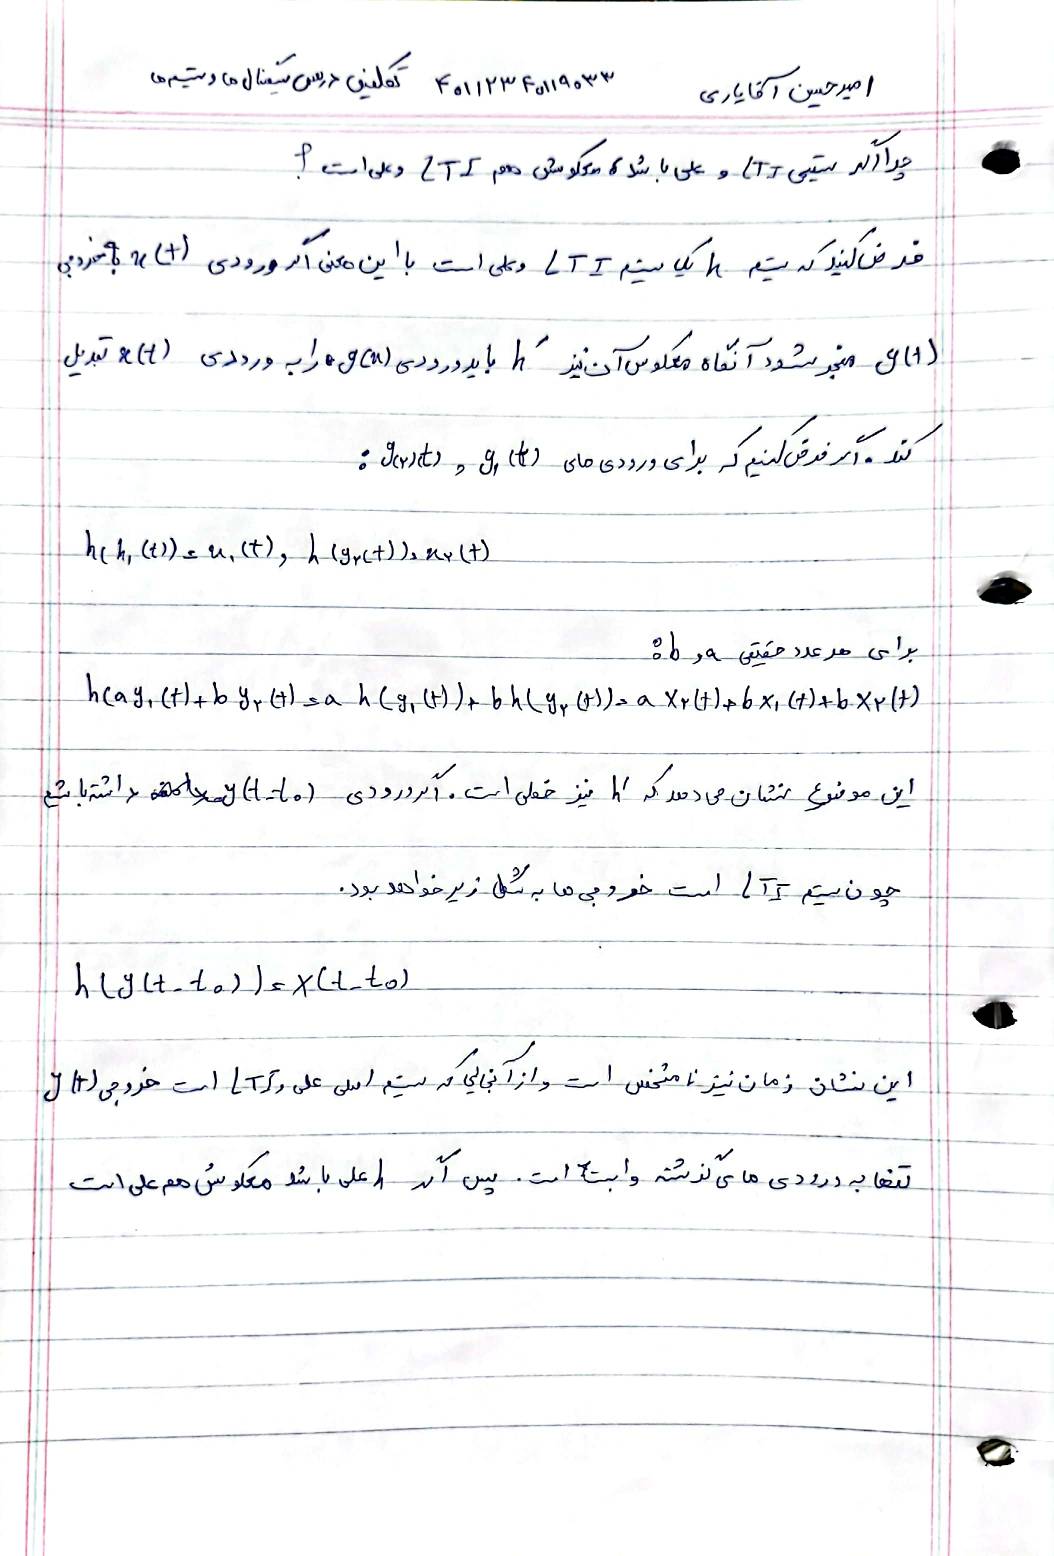 امیرحسین آقایاری ۴۰۱۱۲۳۴۰۱۱۹۰۳۳ تکلیف درس سیگنال ها و سیستم ها
چرا اگر سیستمی LTI و علی باشد معکوسش هم LTI و علی است ؟
فرض کنید که سیستم h یک سیستم LTI و علی است با این معنی اگر ورودی x(t) به خروجی
y(t) منجر شود آنگاه معکوس آن نیز h' باید ورودی y(x) را به ورودی x(t) تبدیل
کند . اگر فرض کنیم که برای ورودی های y۱(t) و y(۲)(t) :
h(h۱(t)) = x۱(t) , h(y۲(t)) = x۲(t)
برای هر عدد حقیقی a و b :
h(ay۱(t)+by۲(t) = a h(y۱(t))+bh(y۲(t)) = a x۲(t)+bx۱(t)+bx۲(t)
این موضوع نشان می دهد که h' نیز خطی است . اگر ورودی y(t-t۰) داشته باشیم
چون سیستم LTI است خروجی ها به شکل زیر خواهد بود .
h(y(t-t۰)) = x(t-t۰)
این نشان زمان نیز نامتخص است و از آنجایی که سیستم اصلی علی و LTI است خروجی y(t)
تنها به ورودی های گذشته وابسته است . پس اگر h علی باشد معکوسش هم علی است